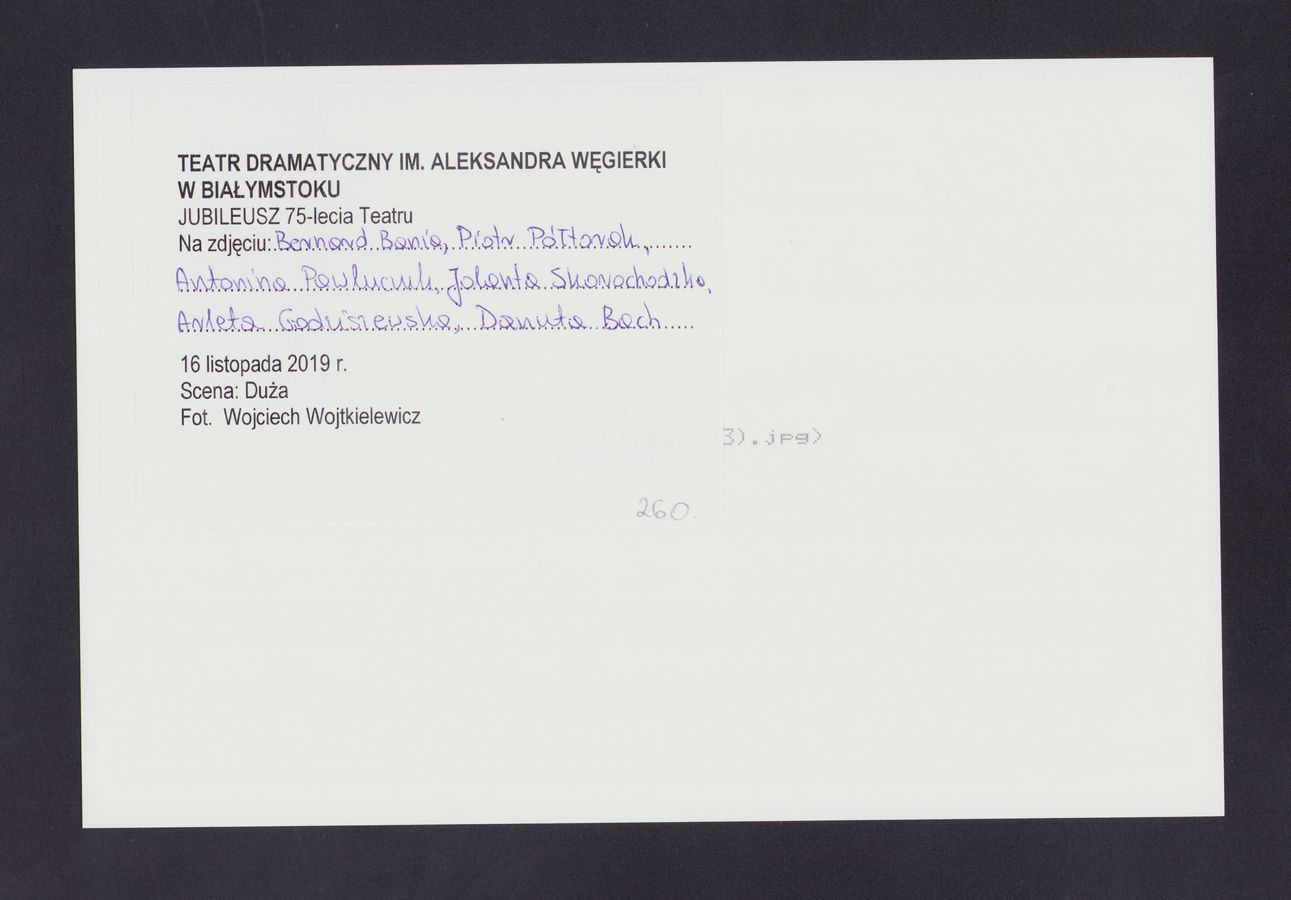 TEATR DRAMATYCZNY IM. ALEKSANDRA WĘGIERKI
W BIAŁYMSTOKU
JUBILEUSZ 75-lecia Teatru
Na zdjęciu: Bernard Bania, Piotr Półtorak,
Antonina Pawluczuk, Jolanta Skorochodzko,
Arleta Godziszewska, Danuta Bach
16 listopada 2019 r.
Scena: Duża
Fot. Wojciech Wojtkielewicz
3).jpg>
260.